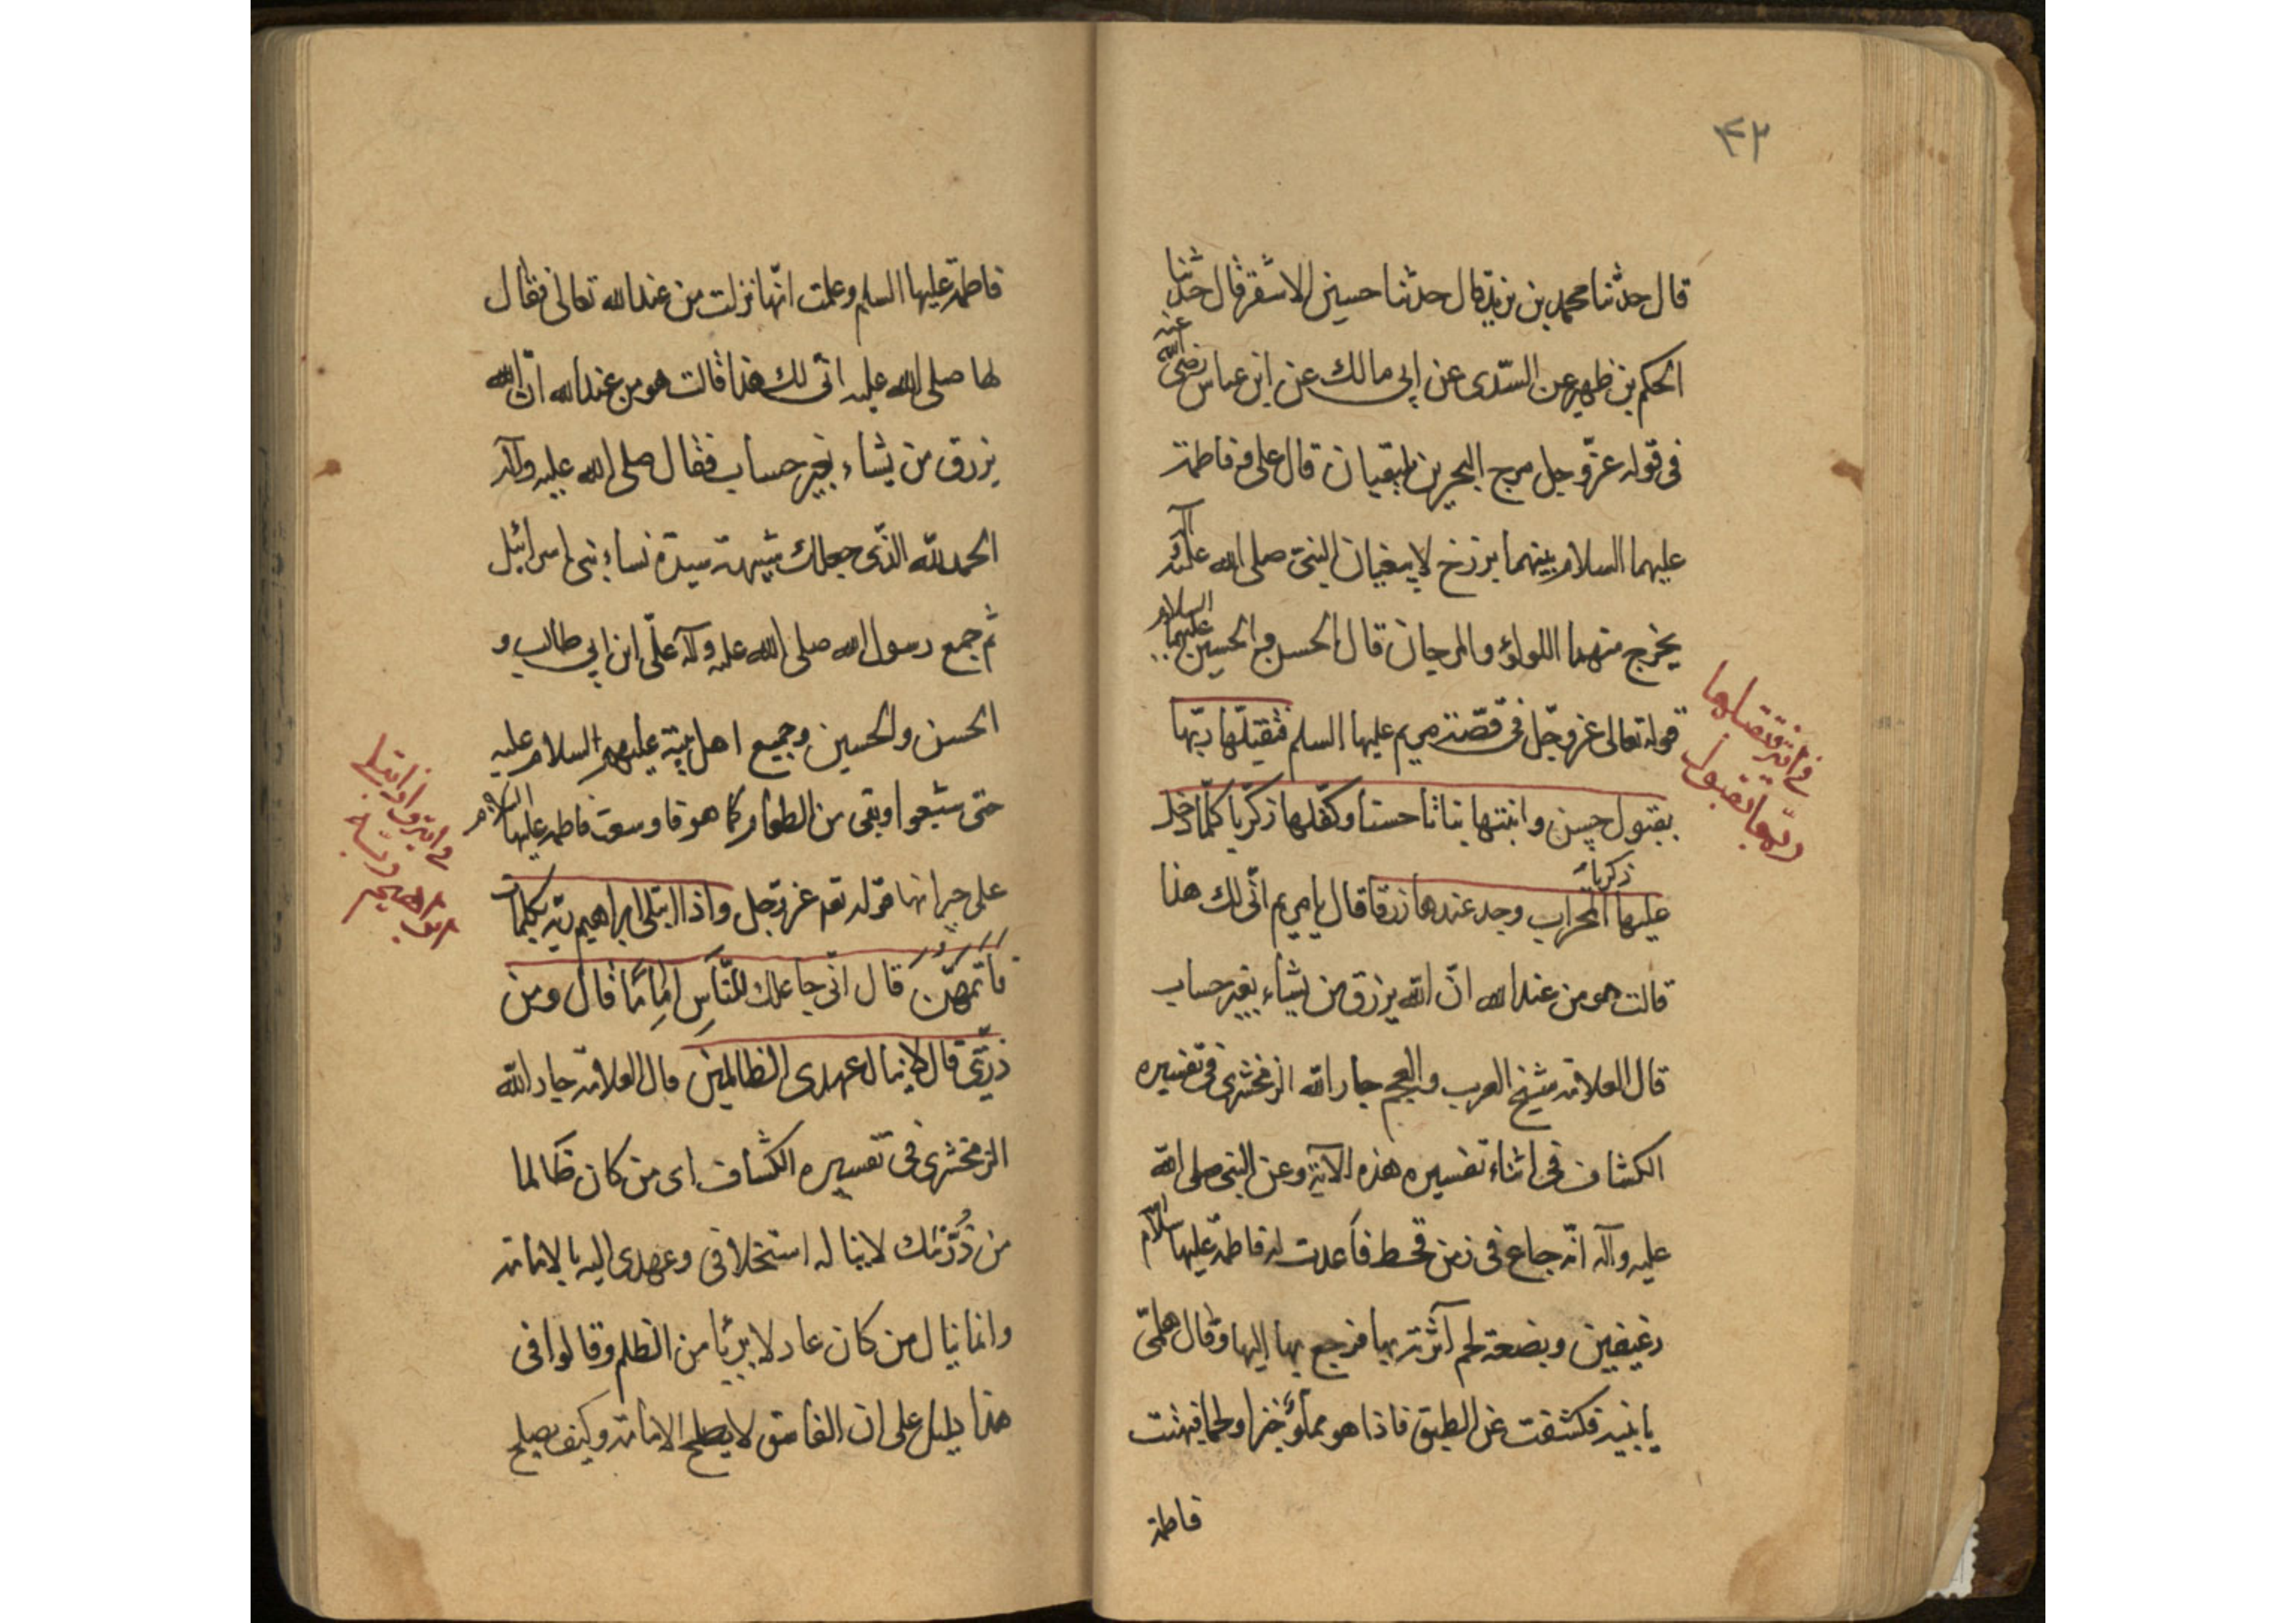 ٤٢
قال حدثنا محمد بن يزيد قال حدثنا حسين الاشقر قال حدثنا
الحكم بن ظهير عن السّدى عن ابى مالك عن ابن عباس رضى الله عنه
فى قوله عزّ وجل مرج البحرين يلتقيان قال على و فاطمة
عليهما السلام بينهما برزخ لا يبغيان النبى صلى الله عليه وآله
يخرج منهما اللولؤ والمرجان قال الحسن و الحسين عليهما السلام
قوله تعالى عز وجّل فى قصّة مريم عليها السلم فتقبّلها ربّها
بقبول حسن وانبتها نباتا حسنا وكفّلها زكريا كلّما دخل
عليها زكريا المحراب وجد عندها رزقا قال يا مريم انّى لك هذا
قالت هو من عند الله انّ الله يرزق من يشاء بغير حساب
قال العلامة شيخ العرب و العجم جار الله الزمخشرى فى تفسيره
الكشاف فى اثناء تفسيره هذه الآية وعن النبى صلى الله
عليه وآله انّه جاع فى زمن قحط فأهدت له فاطمة عليها السلام
رغيفين وبضعة لحم آثرته بها فرجع بها اليها وقال هلمّى
يا بنية فكشفت عن الطبق فاذا هو مملؤ خبزا ولحما فبهتت
فاطمة
ربّها بقبول
فاطمة عليها السلم وعلمت انّها نزلت من عند الله تعالى فقال
لها صلى الله عليه انّى لك هذا قالت هو من عند الله انّ الله
يرزق من يشاء بغير حساب فقال صلى الله عليه وآله
الحمد لله الذّى جعلك شبيهة سيدة نساء بنى اسرائيل
ثم جمع رسول الله صلى الله عليه وآله علّى ابن ابى طالب و
الحسن والحسين وجميع اهل بيته عليهم السلام عليه
حتى شبعوا وبقى من الطعام كما هو فاوسعت فاطمه عليها السلام
على جيرانها قوله تعه عز وجل واذ ابتلى ابراهيم ربّه بكلمات
فَاَتَمَّهُنَّ قال انّى جاعلك للنّاسِ اِمَامًا قال ومن
ذرّيّتى قال لا ينال عهدى الظالمين قال العلامة جار الله
الزمخشرى فى تفسيره الكشاف اى من كان ظالما
من ذُرّيّتك لا يناله استخلافى وعهدى اليه بالامامة
وانما ينال من كان عادلا بريّا من الظلم وقالوا فى
هذا دليل على ان الفاسق لا يصلح الامامة وكيف يصلح
ابراهيم